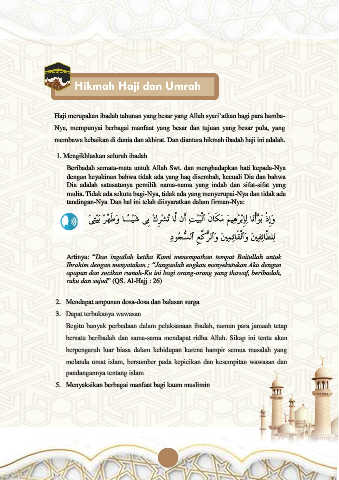 Hikmah Haji dan Umrah
Haji merupakan ibadah tahunan yang besar yang Allah syari'atkan bagi para hamba-
Nya, mempunyai berbagai manfaat yang besar dan tujuan yang besar pula, yang
membawa kebaikan di dunia dan akhirat. Dan diantara hikmah ibadah haji ini adalah.
1. Mengikhlaskan seluruh ibadah
Beribadah semata-mata untuk Allah Swt. dan menghadapkan hati kepada-Nya
dengan keyakinan bahwa tidak ada yang haq disembah, kecuali Dia dan bahwa
Dia adalah satusatunya pemilik nama-nama yang indah dan sifat-sifat yang
mulia. Tidak ada sekutu bagi-Nya, tidak ada yang menyerupai-Nya dan tidak ada
tandingan-Nya. Dan hal ini telah diisyaratkan dalam firman-Nya:
وَإِذْ بَوَّأْنَا لِإِبْرَٰهِيمَ مَكَانَ ٱلْبَيْتِ أَن لَّا تُشْرِكْ بِى شَيْـًٔا وَطَهِّرْ بَيْتِىَ
لِلطَّآئِفِينَ وَٱلْقَآئِمِينَ وَٱلرُّكَّعِ ٱلسُّجُودِ
Artinya: "Dan ingatlah ketika Kami menempatkan tempat Baitullah untuk
Ibrahim dengan menyatakan ; "Janganlah engkau menyekutukan Aku dengan
apapun dan sucikan rumah-Ku ini bagi orang-orang yang thawaf, beribadah,
ruku dan sujud" (QS. Al-Hajj : 26)
2. Mendapat ampunan dosa-dosa dan balasan surga
3. Dapat terbukanya wawasan
Begitu banyak perbedaan dalam pelaksanaan ibadah, namun para jamaah tetap
bersatu beribadah dan sama-sama mendapat ridha Allah. Sikap ini tentu akan
berpengaruh luar biasa dalam kehidupan karena hampir semua masalah yang
melanda umat islam, bersumber pada kepicikan dan kesempitan wawasan dan
pandangannya tentang islam
5. Menyaksikan berbagai manfaat bagi kaum muslimin